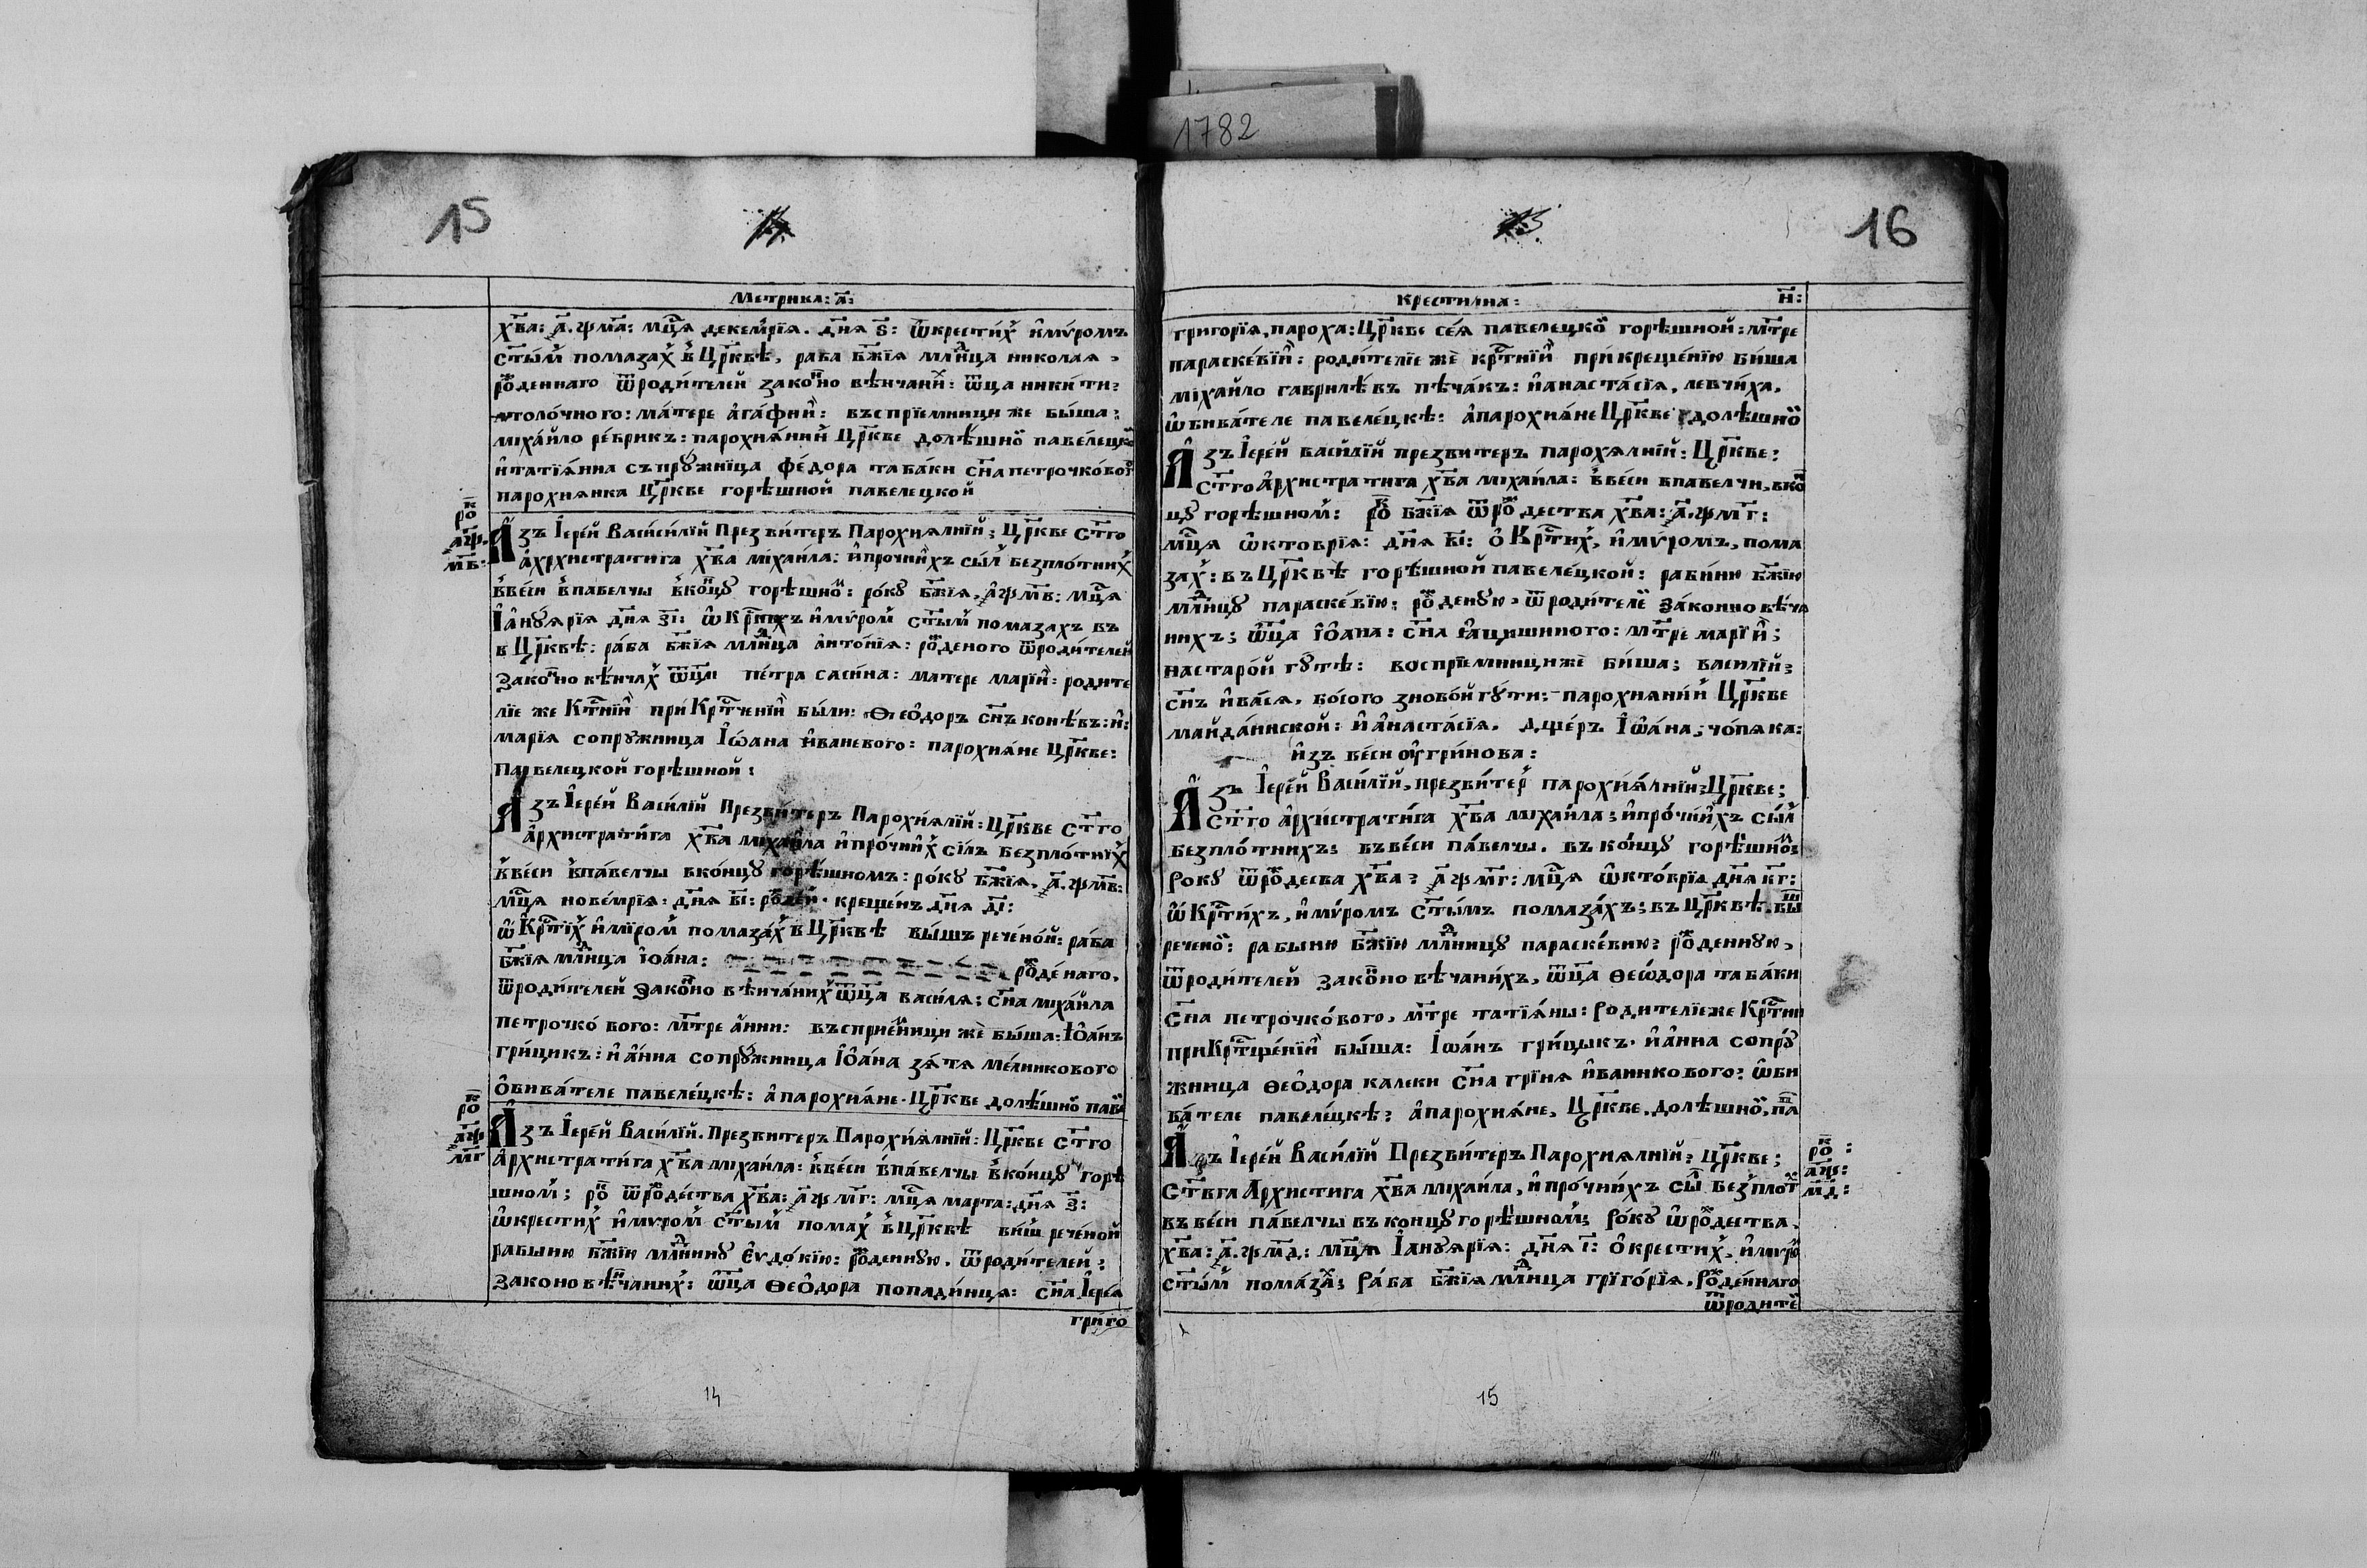 1782
15
16
Метрика: а҃:
хв҃а: ҂а҃.ѱм҃а: мц҃а декемрїа. дн҃я ѕ҃: ѿкрестихъ и҆мѵ́ромъ
ст҃ы́м помаза́х в Цр҃квѣ, раба бж҃їя млⷣнца николая,
рⷪ҇деннаго ѿроди́телей зако́нно вѣнчаних: ѿца ники́ти:
мтоло́чного: ма́тере ага́фиий: въспрїемници же бы́ша:
міха́йло ре́брикъ: парохия́ний Цр҃кве долѣ́шной паве́лецко
и҆татїа́нна съпрꙋжнїца фе́дора таба́ки сн҃а петрочко́вого
парохиянка Цр҃кве горѣшной павелецкой
рок
҂аѱ.
м҃в:
Азъ Іере́й Васисилїй Презви́теръ Парохиялнїй: Цр҃кве Ст҃го
а҆хрхистратига хв҃а міхаила: и҆прочиихъ сыл безпло́тних
ввеси впавелчы вконцꙋ горѣшно: ро́кꙋ бж҃їя, ҂аѱм҃в: мц҃а
Іанꙋа́рїа дн҃я з҃і: ѡ҆Крⷭ҇тихъ и҆мѵ́ром ст҃ым помазахъ въ
в Цр҃квѣ: ра́ба бж҃їя млⷣнца анто́нїа: рⷪ҇деного ѿроди́телей
Зако́нно вѣнчах ѿци пе́тра сасина: матере марїй: родите
лїе же Кт҃нїй при Крⷭ҇тченїй были: Ѳео̂доръ сн҃ъ конѣ́въ: и҆:
марїа сопрꙋжница Іѡ́ана и҆ваневого: парохия́не Цр҃кве:
Парвелецкой горѣшной:
Азъ Іере́й Васи́лїй Презви́теръ Парохия́лїй: Цр҃кве Ст҃го
архистрати́га хв҃а міхаи̂ла и҆про́чних сїлъ безпло́тнїх
ввеси впа́велчы вко́нцꙋ горѣ́шномъ: ро́кꙋ бж҃їя, ҂а҃.ѱм҃в:
мц҃а нове́мрїа: дн҃я в҃і: рⷪ҇де́н. креще́нъ дн҃я д҃і:
ѡ҆Крⷭ҇тїх и҆мїром помаза́х в Цр҃квѣ вы́шъ рече́нѡй: ра́ба
бж҃їя млⷣнца іѡа́на: рⷪ҇де́наго,
ѿроди́телей Зако́нно вѣнча́них ѿца васи́ля: сн҃а міха́йла
петрочко́вого: мт҃ре а҆нни: въсприе́мници же бы́ша: Іо̂а́нъ
гри́цикъ: и҆ а҆нна сопрꙋ́жница Іо̂а́на зя́тя ме́лникового
о̂бива́теле павеле́цкѣ: а҆парохия́не. Цр҃кве долѣ́шно паве
рок
҂аѱ
м҃г
Азъ Іере́й Васи́лїй. Презвитеръ Парохия́лнїй: Цр҃кве Ст҃го
а҆рхистрати́га хв҃а міхаи́ла: ввеси впа́велчы вко́нцꙋ горѣ
шном; рⷪ҇ ѿрⷪ҇де́ства хв҃а: ҂а҃ѱ м҃г: мц҃а марта: дн҃я з҃:
ѡ҆крестих и҆мѵром ст҃ым помах в Цр҃квѣ виш рече́ной
рабыню бж҃їю млⷣнинꙋ еѵдо́кїю: рⷪ҇деннꙋю. ѿроди́телей:
законовѣ́нчаних: ѿца Ѳео̂дора попади́нця: сн҃а Іере́а
григо
14
Крестилна:
и҃:
григо́рїа, пароха: Цр҃кве сея́ павелецко горѣшной: мт҃ре
параске́вїй: роди́телїе же крⷭ҇тнїй при́креще́нїю би́ша
міха́йло гаврилѣ́въ пѣча́къ: и҆анаста́сїа, левчи́ха,
ѡ҆бива́теле павеле́цкѣ: а҆парохия́не Цр҃кве долѣшно
Азъ Іере́й васи́лїй презвитеръ парохялнїй: Цр҃кве:
ст҃го а҆рхистратига хв҃а міхаи́ла: ввеси впавелчи, вкон
цꙋ горѣшном: рⷪ҇к бж҃їя ѿрⷪ҇дества хв҃а: ҂а҃.ѱм҃г:
мц҃а ѡ҆ктоврїа: дн҃я в҃і: о̂ Крⷭ҇тих, и҆мѵ́ромъ, пома
зах: въ Цр҃квѣ горѣ́шной павеле́цкой: раби́ню бж҃їю
млⷣнцꙋ параске́вїю: рⷪ҇денꙋю, ѿроди́теле за́конно вѣ́ча
нихъ; ѿца іо̂ана: сн҃а яцишиного: мт҃ре марїй;
наста́рой гꙋ́тѣ: воспрїемницижѐ би́ша; васи́лїй;
сн҃ъ и҆ва́ся, босого зново́й гꙋ́ти;- парохияни́й Цр҃кве
майда́нской: и҆ а҆наста́сїа. дще́ръ Іѡа́на; чо́пяка:
и҆зъ ве́си оугри́нова:
Азъ Іере́й Васи́лїй, презви́тер парохия́лнїй: Цр҃кве;
ст҃го а҆рхи́страти́га хв҃а міхаи́ла; и҆про́чнихъ сы́л
безпло́тнихъ; въве́си па́велчы. въ ко́нцꙋ горѣ́шно:
рокꙋ ѿрⷪ҇десва хв҃а: ҂а҃ѱм҃г: мц҃а ѡ҆кто́врїа дн҃я к҃г:
ѡ҆́ Крⷭ҇ти́хъ, и҆мѵ́ромъ Ст҃ы́мъ помаза́хъ; въ Цр҃квѣ. выш
речено: рабыню бж҃їю млⷣницꙋ параске́вию: рⷪ҇деннꙋю,
ѿроди́телей зако́нно вѣчани́хъ, ѿца Ѳеѡ́дора таба́ки
сн҃а петрочко́вого, мт҃ре татїа́ны: Родителїеже Крⷭ҇тни
при Крⷭ҇тще́нїй бы́ша: Іѡа́нъ гри́цыкъ. и҆ а҆нна сопрꙋ
жница Ѳео̂дора калеки сн҃а гріня и҆ванникового: ѡ҆би
ва́теле павеле́цкѣ: а҆парохия́не, Цр҃кве, долѣшно, па
Азъ Іере́й Васи́лїй Презви́теръ Парохиялнїй: Цр҃кве;
Ст҃вга Архистига хв҃а міхаи́ла, и҆про́чнихъ сы безплот
въвеси па́велчы въ концꙋ горѣ́шном; Ро́кꙋ ѿрⷪ҇дества,
хв҃а: ҂а҃.ѱм҃д: мц҃а Іанꙋа́рїа: дн҃я і҃: о̂крестих, и҆мѵро
ст҃ы́м пома́за; Ра́ба бж҃їя млⷣнца грїго́рїа, рⷪ҇де́ннаго
ѿродите
рок:
҂аѱ:
м҃д:
15